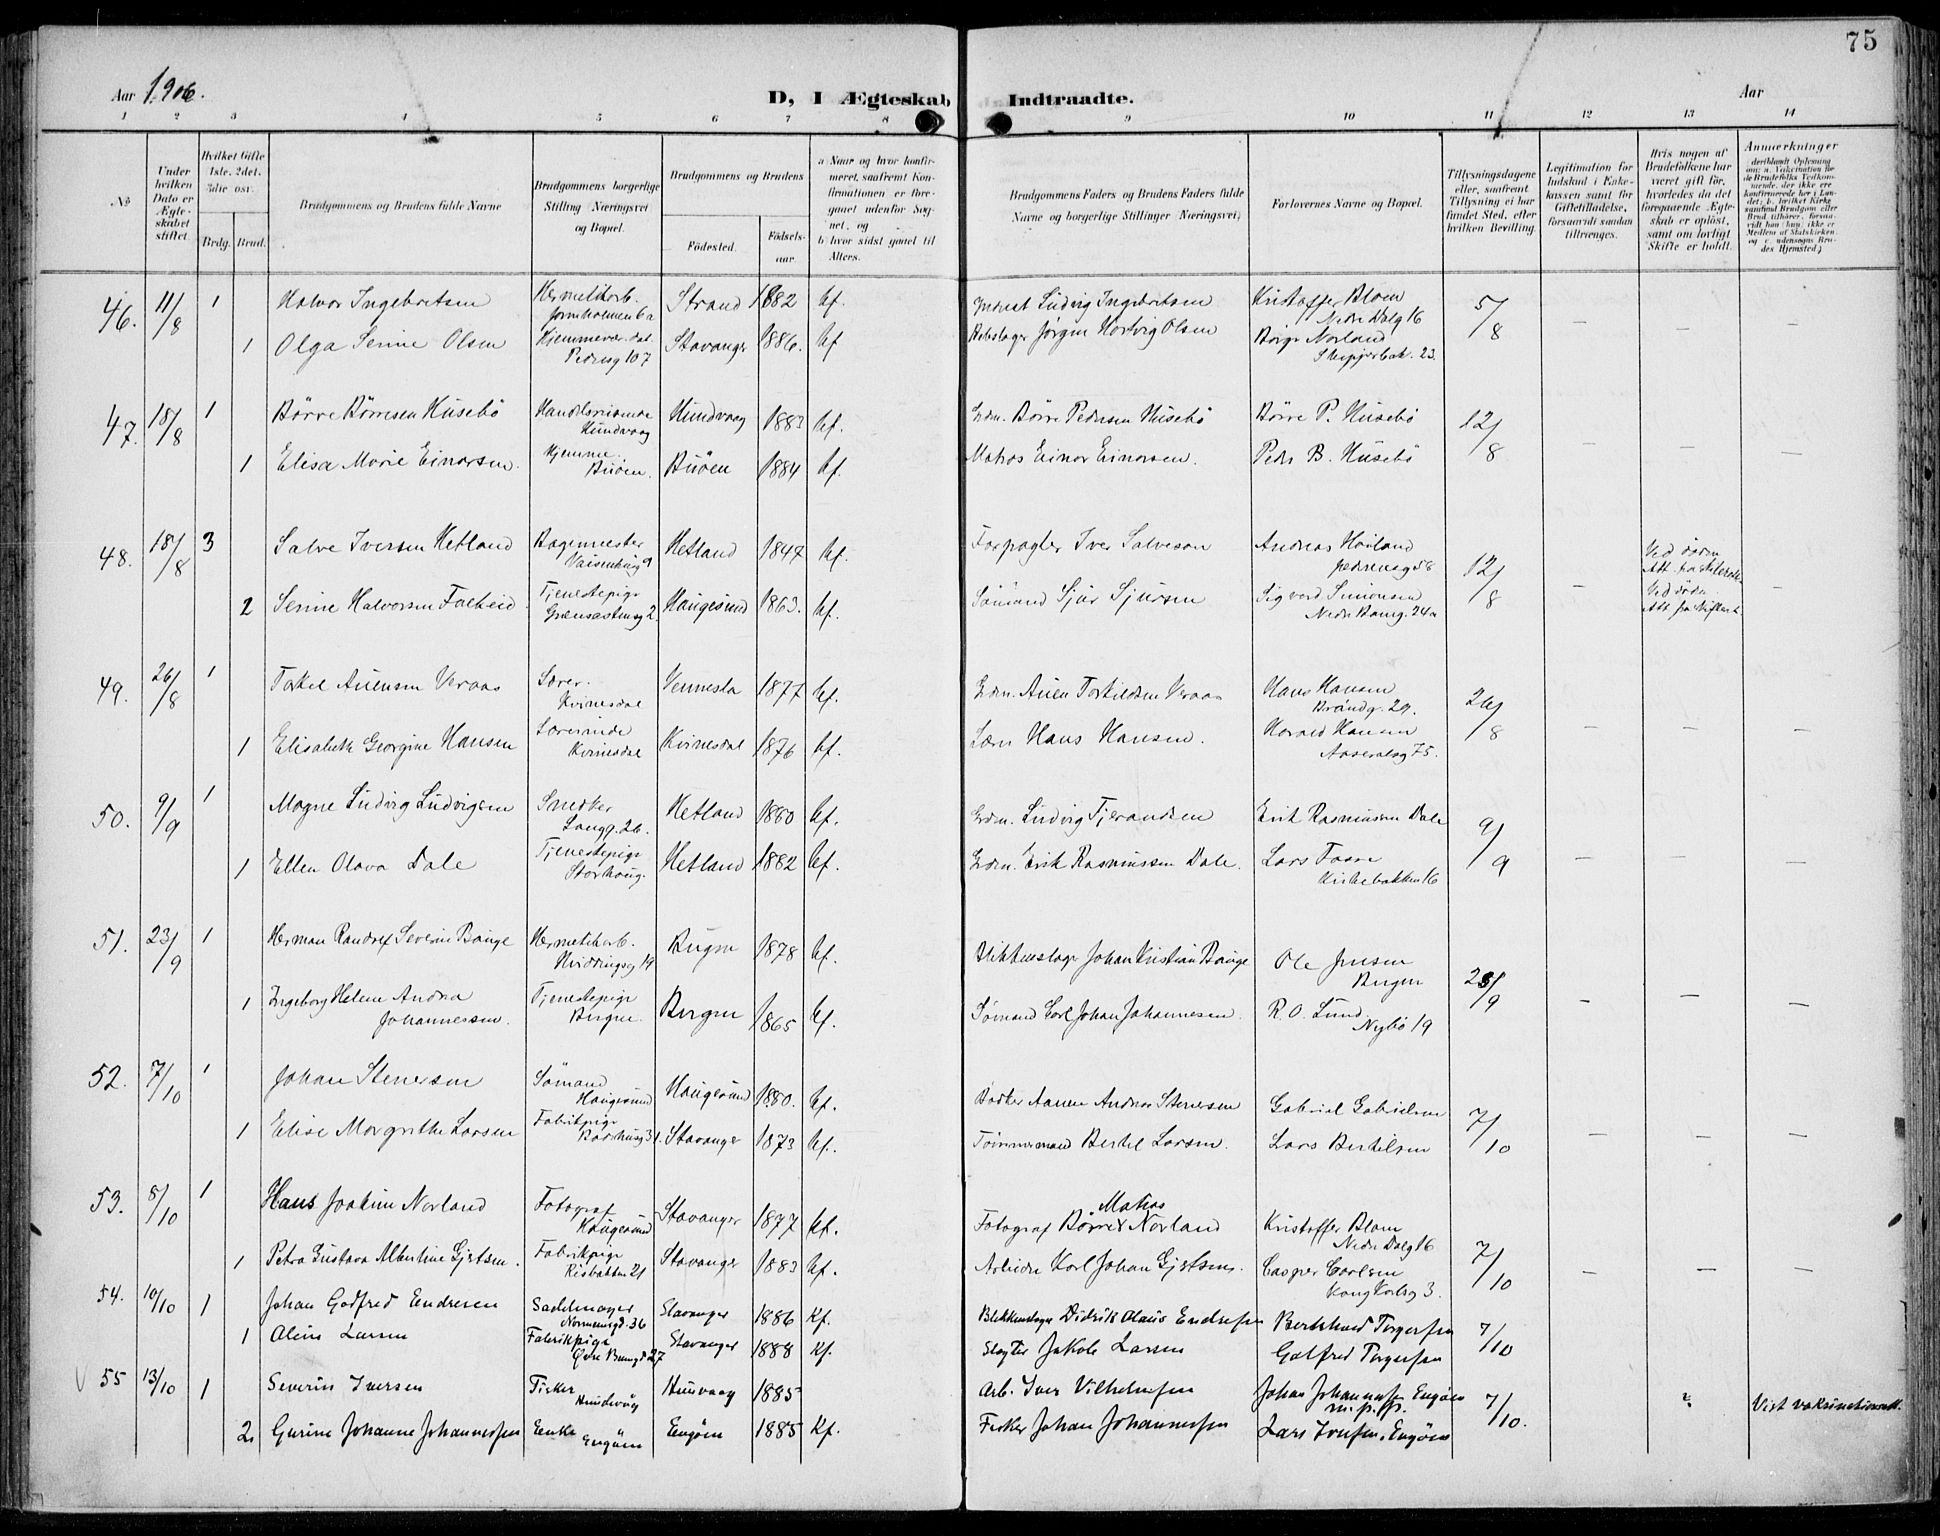 75
Aar 1906.
D, I Ægteskab Indtraadte.
Aar
1 2 3 4 5 6 7 8 9 10 11 12 13 14
No
Under hvilken Dato er Ægteskabet stiftet.
Hvilket Gifte 1ste, 2det, 3die osv.
Brdg. Brud.
Brudgommens og Brudens fulde Navne
Brudgommens borgerlige Stilling Næringsvei og Bopæl.
Brudgommens og Brudens
Fødested.
Fødselsaar.
a Naar og hvor konfirmeret, saafremt Konfirmationen er foregaaet udenfor Sognet, og
b. hvor sidst gaaet til Alters.
Brudgommens Faders og Brudens Faders fulde Navne og borgerlige Stillinger Næringsvei,
Forlovernes Navne og Bopæl.
Tillysningsdagene eller, saafremt Tillysning ei har fundet Sted, efter hvilken Bevilling.
Legitimation for Indskud i Enkekassen samt for Giftetilladelse, forsaavidt saadan tiltrænges.
Hvis nogen af Brudefolkene har været gift før, hvorledes da det foregaaende Ægteskab er opløst, samt om lovligt Skifte er holdt.
Anmerkninger
46. 11/8 1 Halvor Ingebretsen Hermetikarb. Jorenholmen 6a Strand 1882 kf. Ludvig Ingebretsen Kristoffer Blom Nedre Dalg 16 5/8 – – –
1 Olga Serine Olsen Hjemmevær. dat. Pedersg 107 Stavanger 1886. kf Rebslager Jørgen Hartvig Olsen Børge Norland Skipperbak. 23.
47. 18/8 1 Børre Børresen Husebø Handelsreisende Hundvaag Hundvaag 1883 kf. Grdm. Børre Pedersen Husebø Børre P. Husebø 12/8 – – –
1 Elisa Marie Einarsen. Hjemme. Buøen. Buøen 1884 kf. Matros Einar Einarsen. Peder B. Husebø
48. 18/8 3 Salve Iversen Hetland Bagermester Vaisenhusg 9 Hetland 1847 kf. Forpagter Iver Salvesen Andreas Høiland Pedersg 58 12/8 – Ved døden Att. fra Skifteretten –
2 Serine Halvorsen Falkeid. Tjenestepige 2. Haugesund 1863. kf. Sømand Sjur Sjursen Sigvard Simonsen Nedre Bang. 24a Ved døden Att fra Skifteret
49. 26/8 1 Torkel Auensen Veraas Lærer. Kvinesdal Vennesla 1877 kf. Grdm. Auen Torkildsen Veraas Hans Hansen Brandg. 29. 26/8 – – –
1 Elisabeth Georgine Hansen Lærerinde Kvinesdal Kvinesdal 1876 kf. Lærer Hans Hansen. Harald Hansen 75.
50. 9/9 1 Magne Ludvig Ludvigsen Snedker Langg. 26. Hetland 1880 kf. Grdm. Ludvig Tjerandsen Erik Rasmussen Dale 9/9 – – –
1 Ellen Olava Dale Tjenestepige Storhaug. Hetland 1882 kf. Grdm. Erik Rasmussen Dale. Lars Faare Kirkebakken 16
51. 23/9 1 Herman Randolf Severin Bauge Hermetikarb. Hviddingsg 19 Bergen 1878 kf. Blikkenslager Johan Kristian Bauge Ole Jensen Bergen 23/9 – – –
1 Ingeborg Helene Andrea Johannessen. Tjenestepige Bergen. Bergen 1865 kf. Sømand Carl Johan Johannesen. R. O. Lund Nybø 19
52. 7/10 1 Johan Stenersen Sømand Haugesund Haugesund 1880. kf. Bødker Aanen Andreas Stenersen Gabriel Gabrielsen 7/10 – – –
1 Elise Margrethe Larsen Fabrikpige 31. Stavanger 1873 kf. Tømmermand Bertel Larsen. Lars Bertelsen
53. 8/10 1 Hans Joakim Norland Fotograf Haugesund Stavanger 1877 kf. Matros Fotograf Børre Norland Kristoffer Blom Nedre Dalg 16 7/10 – – –
1 Petra Gustava Albertine Gjertsen. Fabrikpige Risbakken 21 Stavanger 1883 kf. Arbeider Karl Johan Gjertsen. Casper Carlsen Kong Karlsg 3.
54. 10/10 1 Johan Godfred Endresen Sadelmager 36 Stavanger 1886 Kf. Blikkenslager Didrik Olaus Endresen Bernhard Torgersen 7/10
1 Alvine Larsen Fabrikpige Øvre Bangd 27 Stavanger 1888 Kf. Slagter Jakob Larsen Gotfred Torgersen
55 13/10 1 Severin Iversen Fisker Hundvåg Hunvaag 1885 Arb. Iver Vilhelmsen Johan Johannesen Engøen m. p. p. 7/10. ? Vist vaksinationsatt.
2. Gurine Johanne Johannessen Enke Engøen Engøen 1885 Kf. Fisker Johan Johannessen Lars Iversen, Engøen